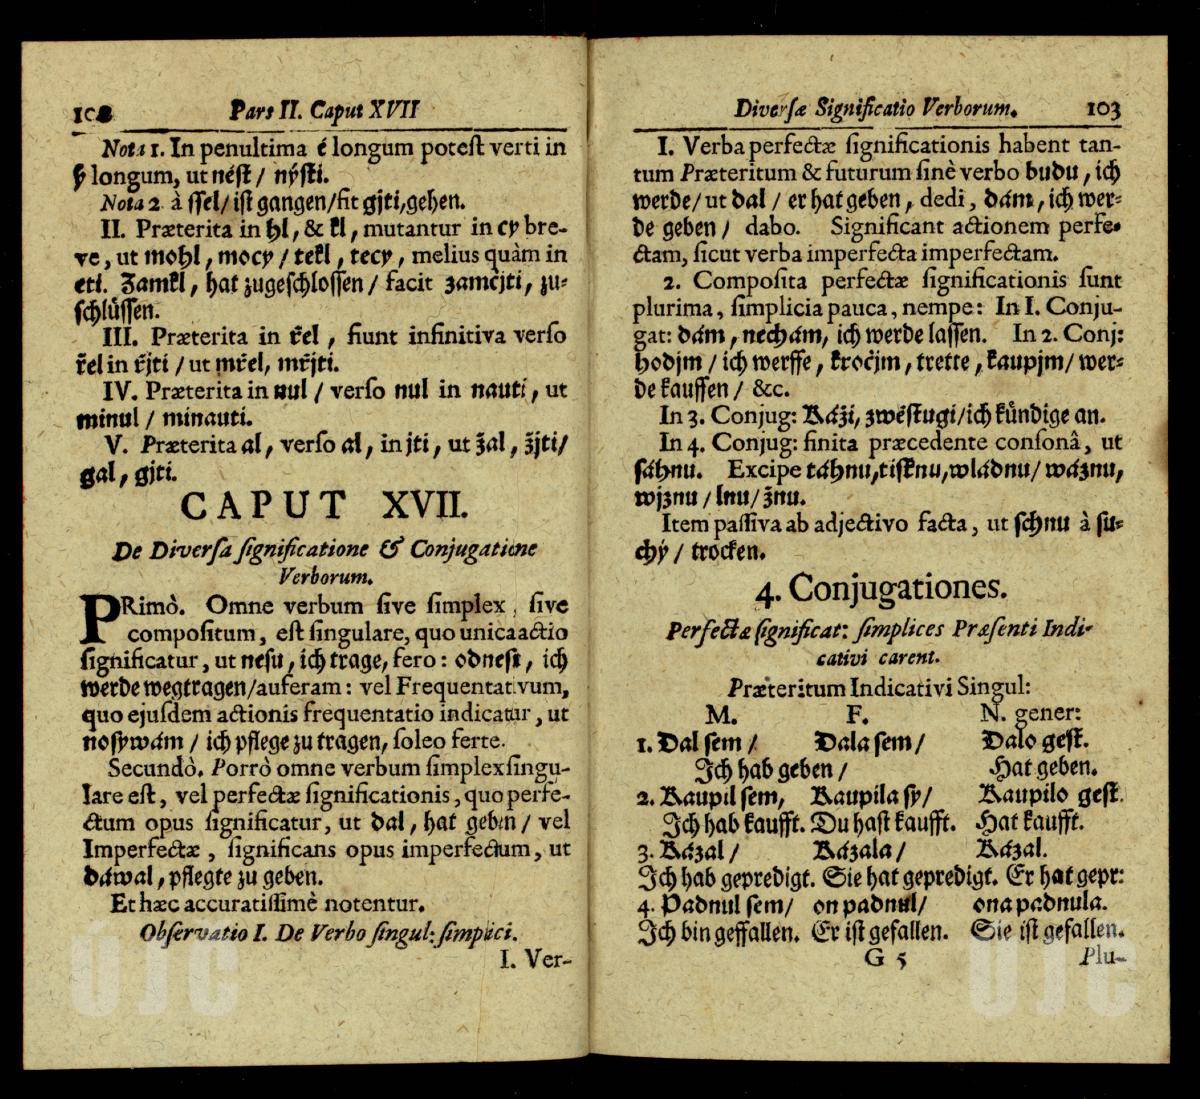 102 Pars II. Caput XVII
Nota 1. In penultima é longum potest verti in
ẏ longum, ut nést / nýsti.
Nota 2 à ssel / ist gangen / fit gjti, gehen.
II. Præterita in hl, & kl, mutantur in cy bre-
ve, ut mohl, mocy / tekl, tecy, melius quàm in
eti. Zamkl, hat zugeschlossen / facit zamćjti, zu-
schlüssen.
III. Præterita in řel, fiunt infinitiva verso
řel in řjti / ut mřel, mřjti.
IV. Præterita in nul / verso nul in nauti, ut
minul / minauti.
V. Præterita al, verso al, in jti, ut žal, žjti /
gal, gjti.
CAPUT XVII.
De Diversa significatione & Conjugatione
Verborum.
PRimò. Omne verbum sive simplex, sive
compositum, est singulare, quo unica actio
significatur, ut nesu, ich trage, fero: odnest, ich
werde wegtragen / auferam: vel Frequentativum,
quo ejusdem actionis frequentatio indicatur, ut
nosywám / ich pflege zu tragen, soleo ferre.
Secundò. Porrò omne verbum simplex singu-
lare est, vel perfectæ significationis, quo perfe-
ctum opus significatur, ut dal, hat geben / vel
Imperfectæ, significans opus imperfectum, ut
dáwal, pflegte zu geben.
Et hæc accuratissimè notentur.
Observatio I. De Verbo singul: simplici.
I. Ver-
Diversæ Significatio Verborum. 103
I. Verba perfectæ significationis habent tan-
tum Præteritum & futurum sinè verbo budu, ich
werde / ut dal / er hat geben, dedi, dám, ich wer-
de geben / dabo. Significant actionem perfe-
ctam, sicut verba imperfecta imperfectam.
2. Composita perfectæ significationis sunt
plurima, simplicia pauca, nempe: In I. Conju-
gat: dám, nechám, ich werde lassen. In 2. Conj:
hodjm / ich werffe, kroćjm, trette, kaupjm / wer-
de kauffen / &c.
In 3. Conjug: Káži, zwěstugi / ich kündige an.
In 4. Conjug: finita præcedente consonâ, ut
sáhnu. Excipe táhnu, tisknu, wládnu / wáznu,
wjznu / lnu / žnu.
Item passiva ab adjectivo facta, ut schnu à su-
chý / trocken.
4. Conjugationes.
Perfectæ significat: simplices Præsenti Indi-
cativi carent.
Præteritum Indicativi Singul:
M. F. N. gener:
1. Dal sem / Dala sem / Dalo gest.
Ich hab geben / Hat geben.
2. Kaupil sem, Kaupila sy / Kaupilo gest.
Ich hab kaufft. Du hast kaufft. Hat kaufft.
3. Kázal / Kázala / Kázal.
Ich hab gepredigt. Sie hat gepredigt. Er hat gepr:
4. Padnul sem / on padnul / ona padnula.
Ich bin geffallen. Er ist gefallen. Sie ist gefallen.
G 5 Plu-